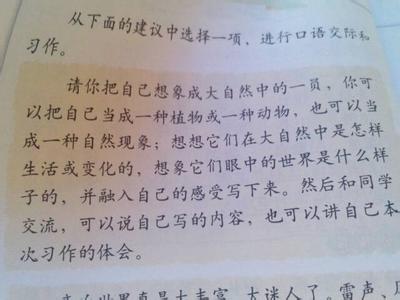 从下面的建议中选择一项，进行口语交际和
习作。
请你把自己想象成大自然中的一员，你可
以把自己当成一种植物或一种动物，也可以当
成一种自然现象；想想它们在大自然中是怎样
生活或变化的，想象它们眼中的世界是什么样
子的，并融入自己的感受写下来。然后和同学
交流，可以说自己写的内容，也可以讲自己本
次习作的体会。
世界真是大丰富、大迷人了。雷声、